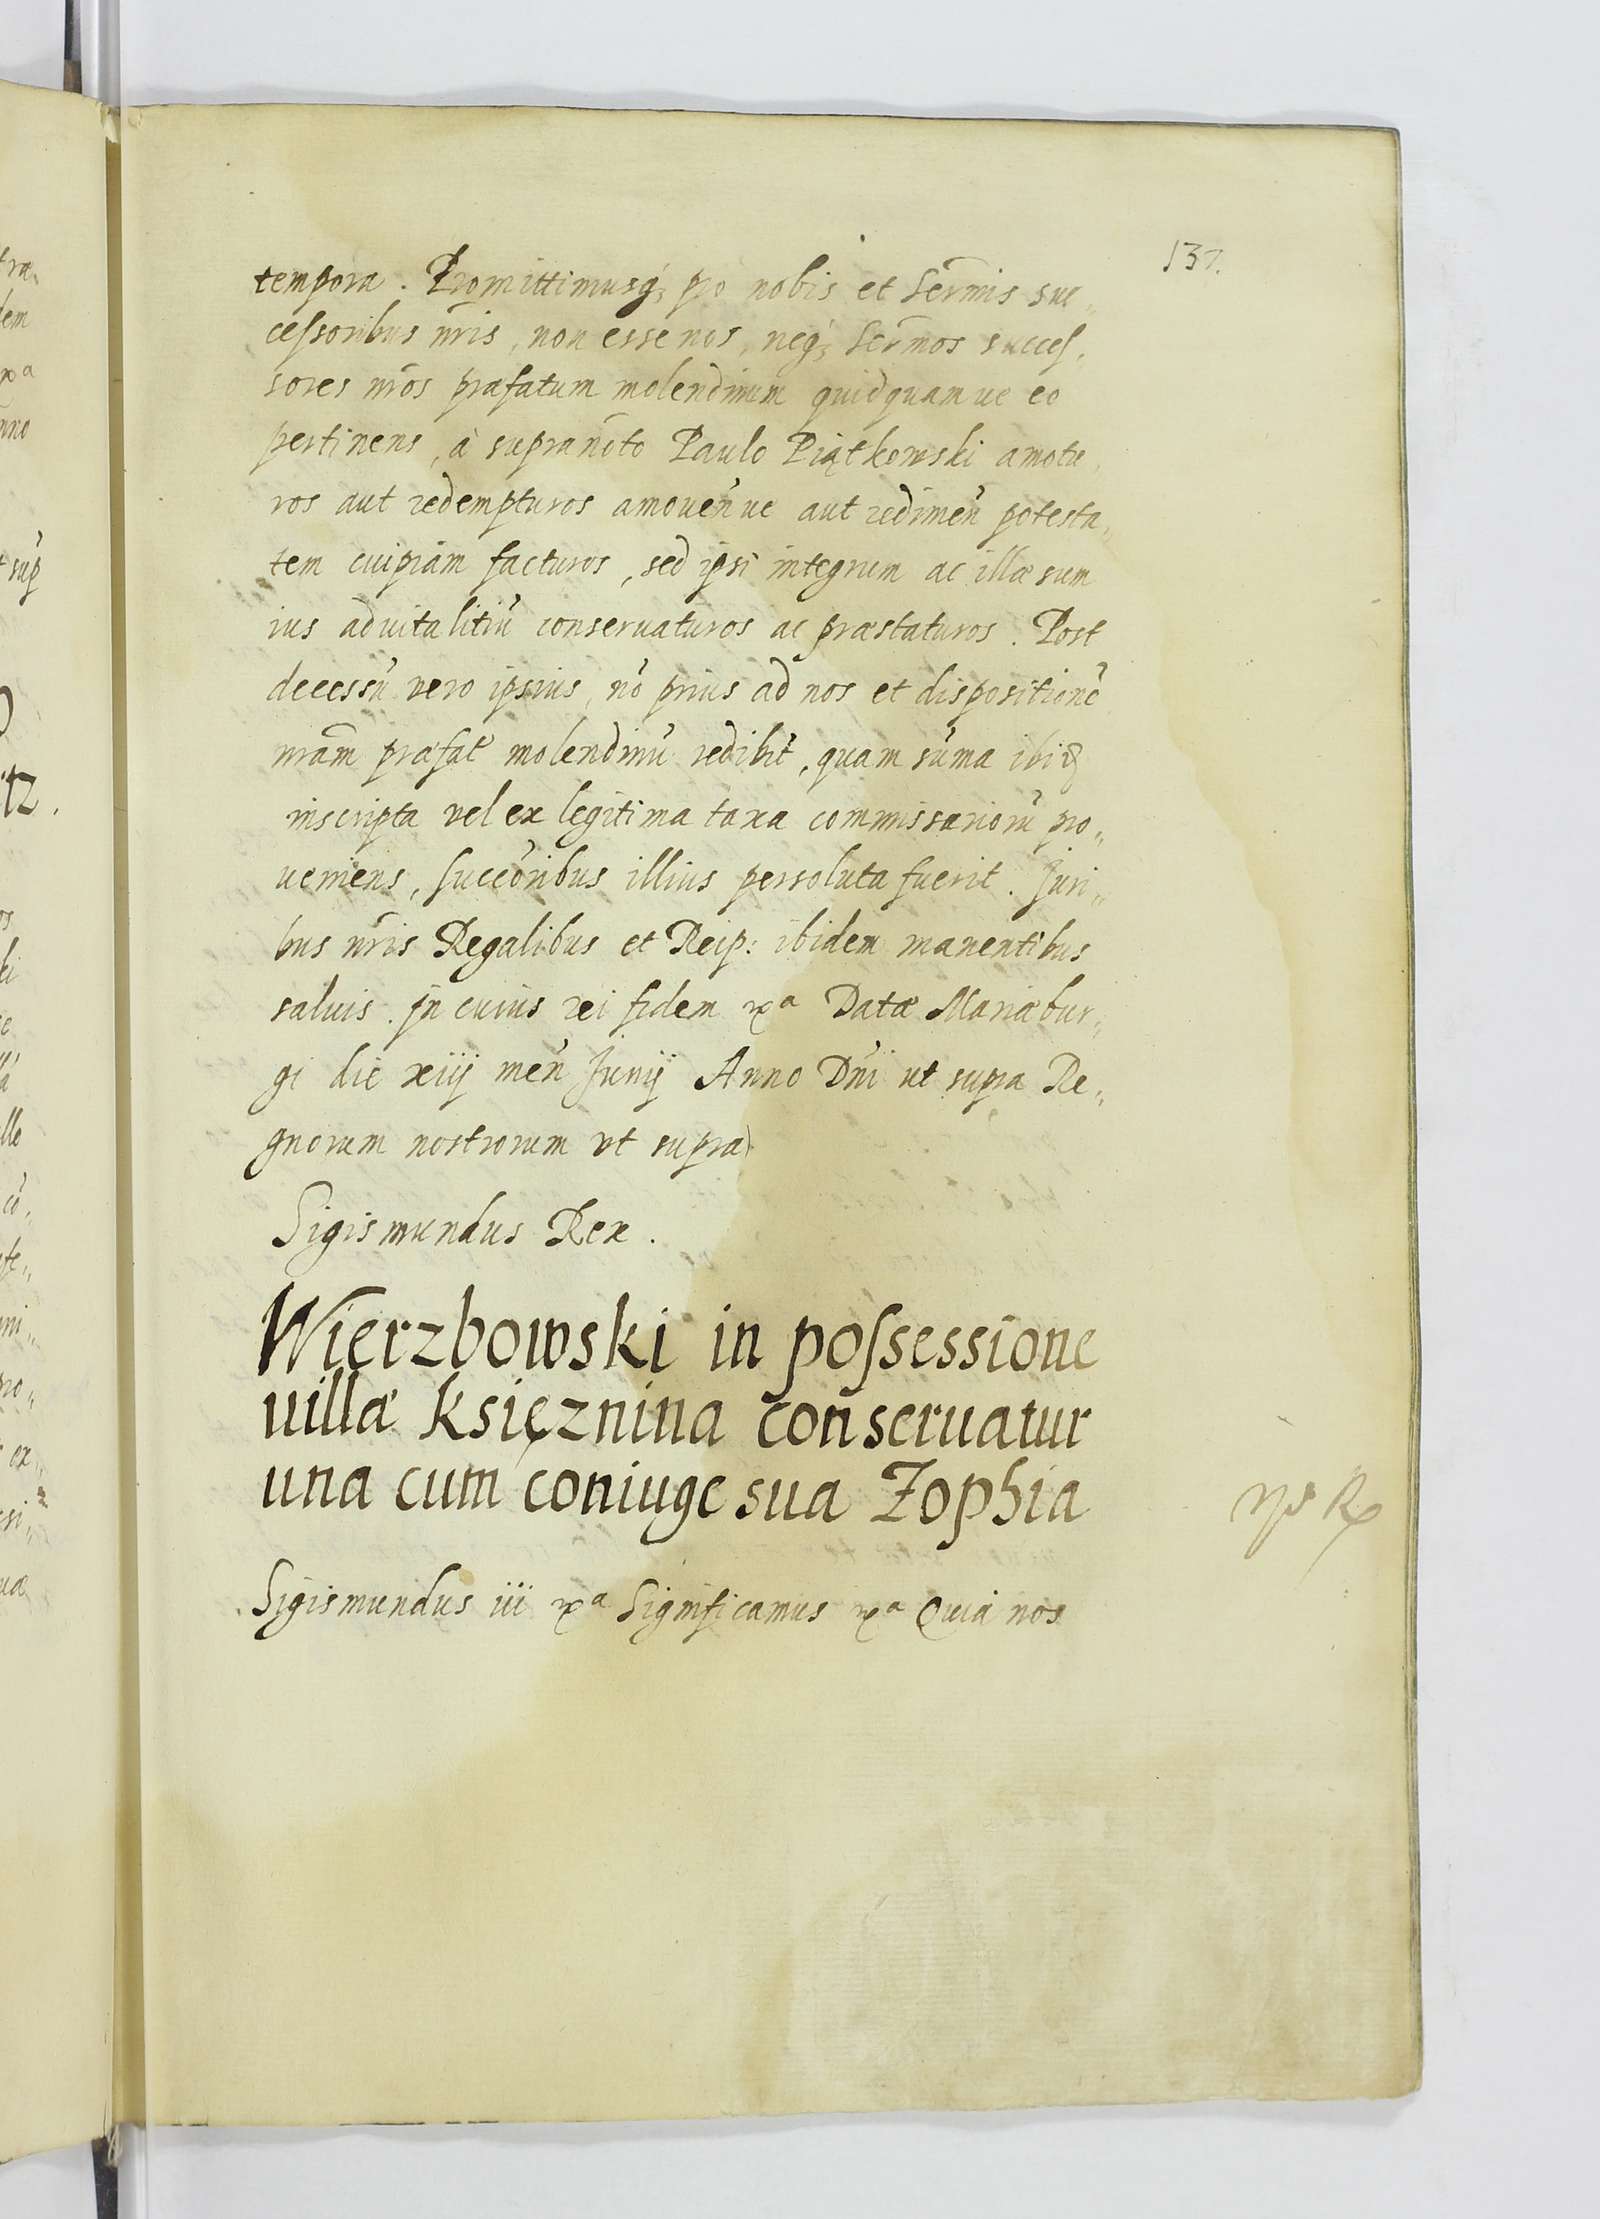 137.
tempora. Promittimusq₃ pro nobis et Serm̄is suc„
cessoribus nr̄is, non esse nos, neq₃ Serm̄os succes„
sores nr̄os præfatum molendinum quidquamue eo
pertinens, à supranōto Paulo Piątkowski amotu„
ros aut redempturos amouen̄ue aut redimen̄ potesta„
tem cuipiam facturos, sed ipsi integrum ac illæsum
ius aduitalitiū conseruaturos ac præstaturos. Post
decessū vero ipsius, nō prius ad nos et dispositionē
nrām præfat̄ molendinū redibit, quam sūma ibid
inscripta vel ex legitima taxa commissariorū pro„
ueniens, succōribus illius persoluta fuerit. Juri„
bus nr̄is Regalibus et Reip: ibidem manentibus
saluis. Jn cuius rei fidem xª Datæ Mariæbur„
gi die xiij men̄ Junij Anno Dn̄i ut supra Re„
gnorum nostrorum vt supra
Sigismundus Rex.
Wierzbowski in possessione
uillæ Księznina conseruatur
una cum coniuge sua Zophia
Sigismundus iii xª Significamus xª Quia nos